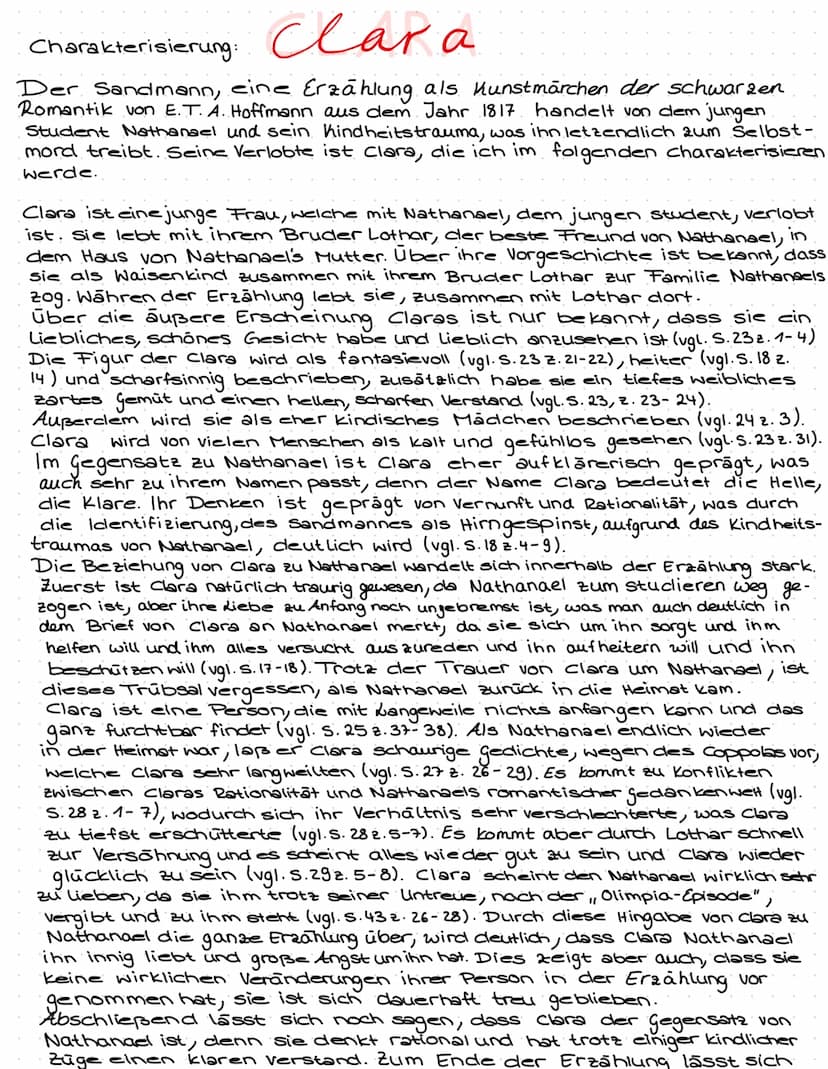 Charakterisierung: Clara
Der Sandmann, eine Erzählung als Kunstmärchen der schwarzen
Romantik von E.T.A. Hoffmann aus dem Jahr 1817 handelt von dem jungen
Student Nathanael und sein Kindheitstrauma, was ihn letzendlich zum Selbst-
mord treibt. Seine Verlobte ist Clara, die ich im folgenden charakterisieren
werde.
Clara ist eine junge Frau, welche mit Nathanael, dem jungen student, verlobt
ist. Sie lebt mit ihrem Bruder Lothar, der beste Freund von Nathanael, in
dem Haus von Nathanael's Mutter. Über ihre Vorgeschichte ist bekannt, dass
sie als Waisenkind zusammen mit ihrem Bruder Lothar zur Familie Nathanaels
zog. Währen der Erzählung lebt sie, zusammen mit Lothar dort.
Über die äußere Erscheinung Claras ist nur bekannt, dass sie ein
Liebliches, schönes Gesicht habe und lieblich anzusehen ist (vgl. S.23 z. 1-4)
Die Figur der Clara wird als fantasievoll (vgl. S.23 z. 21-22), heiter (vgl. S. 18 z.
14) und scharfsinnig beschrieben, zusätzlich habe sie ein tiefes weibliches
zartes Gemüt und einen hellen, scharfen Verstand (vgl. S. 23, z. 23-24).
Außerdem wird sie als eher kindisches Mädchen beschrieben (vgl. 24 z. 3).
Clara wird von vielen Menschen als kalt und gefühllos gesehen (vgl. S.23 z. 31).
Im Gegensatz zu Nathanael ist Clara eher aufklärerisch geprägt, was
auch sehr zu ihrem Namen passt, denn der Name Clara bedeutet die Helle,
die Klare. Ihr Denken ist geprägt von Vernunft und Rationalität, was durch
die Identifizierung, des Sandmannes als Hirngespinst, aufgrund des Kindheits-
traumas von Nathanael, deutlich wird (vgl. S. 18 z. 4-9).
Die Beziehung von Clara zu Nathanael wandelt sich innerhalb der Erzählung stark.
Zuerst ist Clara natürlich traurig gewesen, da Nathanael zum studieren weg ge-
zogen ist, aber ihre Liebe zu Anfang noch ungebremst ist, was man auch deutlich in
dem Brief von Clara an Nathanael merkt, da sie sich um ihn sorgt und ihm
helfen will und ihm alles versucht auszureden und ihn aufheitern will und ihn
beschützen will (vgl. S. 17-18). Trotz der Trauer von Clara um Nathanael, ist
dieses Trübsal vergessen, als Nathanael zurück in die Heimat kam.
Clara ist eine Person, die mit Langeweile nichts anfangen kann und das
ganz furchtbar findet (vgl. S. 25 z. 37-38). Als Nathanael endlich wieder
in der Heimat war, laß er Clara schaurige Gedichte, wegen des Coppolas vor,
welche Clara sehr langweilten (vgl. S. 27 z. 26-29). Es kommt zu Konflikten
zwischen Claras Rationalität und Nathanaels romantischer Gedankenwelt (vgl.
S. 28 z. 1-7), wodurch sich ihr Verhältnis sehr verschlechterte, was Clara
zu tiefst erschütterte (vgl. S. 28 z. 5-7). Es kommt aber durch Lothar schnell
zur Versöhnung und es scheint alles wieder gut zu sein und Clara wieder
glücklich zu sein (vgl. S.29 z. 5-8). Clara scheint den Nathanael wirklich sehr
zu lieben, da sie ihm trotz seiner Untreue, nach der „Olimpia-Episode",
vergibt und zu ihm steht (vgl. S. 43 z. 26-28). Durch diese Hingabe von Clara zu
Nathanael die ganze Erzählung über, wird deutlich, dass Clara Nathanael
ihn innig liebt und große Angst um ihn hat. Dies zeigt aber auch, dass sie
keine wirklichen Veränderungen ihrer Person in der Erzählung vor
genommen hat, sie ist sich dauerhaft treu geblieben.
Abschließend lässt sich noch sagen, dass Clara der Gegensatz von
Nathanael ist, denn sie denkt rational und hat trotz einiger kindlicher
Züge einen klaren verstand. Zum Ende der Erzählung lässt sich